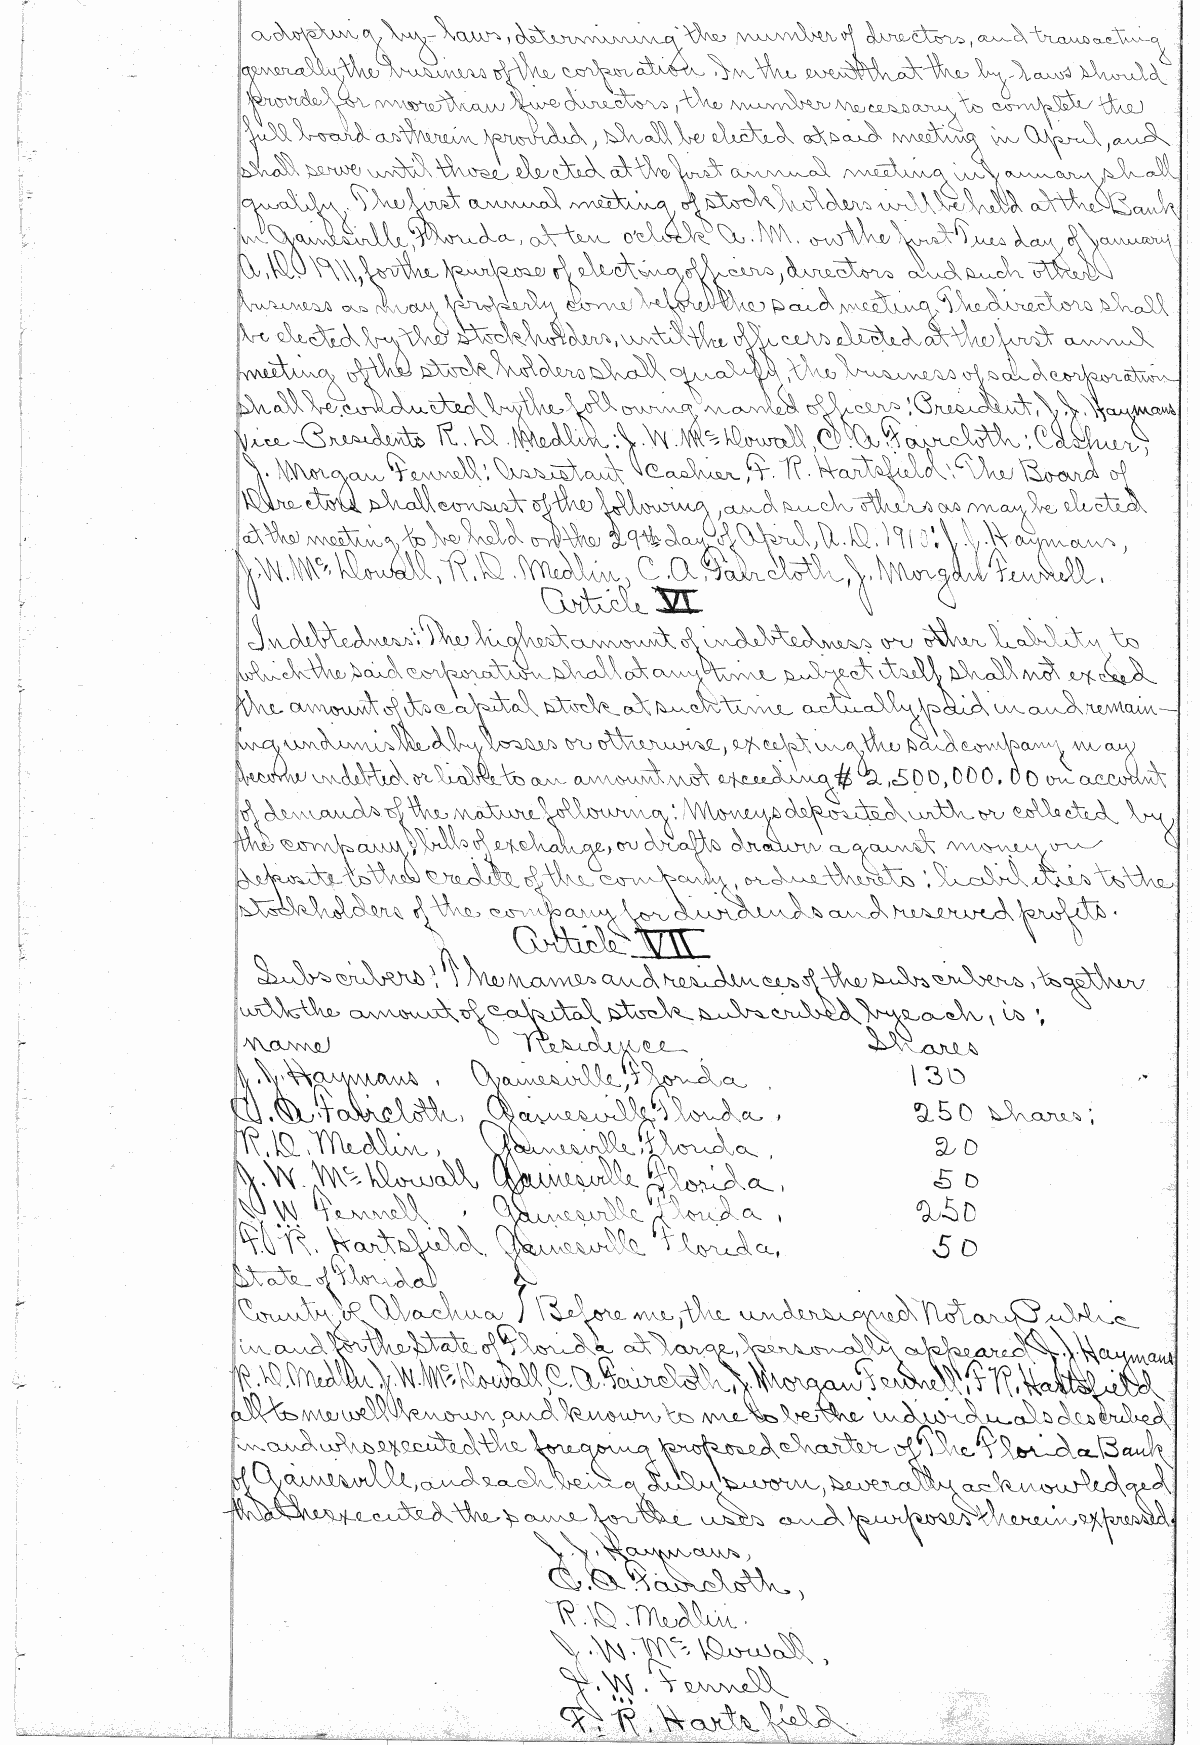 adopting by-laws, determining the number of directors, and transacting
generally the business of the corporation. In the event that the by-laws should
provide for more than five directors, the number necessary to complete the
full board as therein provided, shall be elected at said meeting in April, and
shall serve until those elected at the first annual meeting in January shall
qualify. The first annual meeting of stockholders will be held at the Bank
in Gainesville, Florida, at ten o'clock A.M. on the first Tuesday of January
A.D. 1911, for the purpose of electing officers, directors and such other
business as may properly come before the said meeting. The directors shall
be elected by the stockholders, until the officers elected at the first annul
meeting of the stockholders shall qualify, the business of said corporation
shall be conducted by the following named officers: President, J.J. Haymans
Vice-Presidents R.D. Medlin: J.W. McDowall, C.A. Faircloth: Cashier,
J. Morgan Fennell: Assistant Cashier, F.R. Hartsfield: The Board of
Directors shall consist of the following, and such others as may be elected
at the meeting to be held on the 29th day of April, A.D. 1910: J.J. Haymans,
J.W. McDowall, R.D. Medlin, C.A. Faircloth, J. Morgan Fennell.
Article VI
Indebtedness: The highest amount of indebtedness or other liability to
which the said corporation shall at any time subject itself shall not exceed
the amount of its capital stock at such time actually paid in and remain-
ing undimished by losses or otherwise, excepting the said company may
become indebted or liable to an amount not exceeding $ 2,500,000.00 on account
of demands of the nature following: Moneys deposited with or collected by
the company; bills of exchange, or drafts drawn against money on
deposite to the credite of the company, or due thereto: liabilities to the
stockholders of the company for dividends and reserved profits.
Article VII
Subscribers: The names and residences of the subscribers, together
with the amount of capital stock subscribed by each, is:
Name Residence Shares
J.J. Haymans, Gainesville, Florida 130
C.A. Faircloth, Gainesville Florida, 250 shares;
R.D. Medlin, Gainesville, Florida, 20
J.W. McDowall Gainesville Florida, 50
J.W. Fennell, Gainesville Florida, 250
F.R. Hartsfield, Gainesville Florida, 50
State of Florida
County of Alachua } Before me, the undersigned Notary Public
in and for the State of Florida at large, personally appeared J.J. Haymans
R.D. Medlin, J.W. McDowall, C.A. Faircloth, J. Morgan Fennell, F.R. Hartsfield
all to me well known, and known to me to be the individuals described
in and who executed the foregoing proposed charter of The Florida Bank
of Gainesville, and each being duly sworn, severally acknowledged
that he executed the same for the uses and purposes therein expressed.
J.J. Haymans,
C.A. Faircloth,
R.D. Medlin.
J.W. McDowall,
J.W. Fennell
F.R. Hartsfield